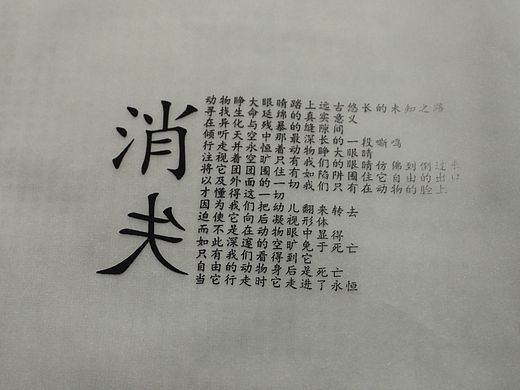 消失
动物睁大眼睛踏上远古悠长的未知之路
寻找生命延绵的真实意义
在异化与残暴的缝隙间
倾听天空中那最深长的一段嘶鸣
行走并永恒着动物睁大眼睛
注视着空旷只有我们的眼睛仿佛到倒过来
将它团团围住有如陷阱围住它自由的出口
以及外面的一切我们只有在动物的脸上
才懂得这一切
因为我们把幼儿翻来转去
迫使它向后凝视形体
而不是在动物眼中显得
如此深邃的空旷免于死亡
只有我们看得到它
自由的动物身后是死亡
当它行走时它走进了永恒